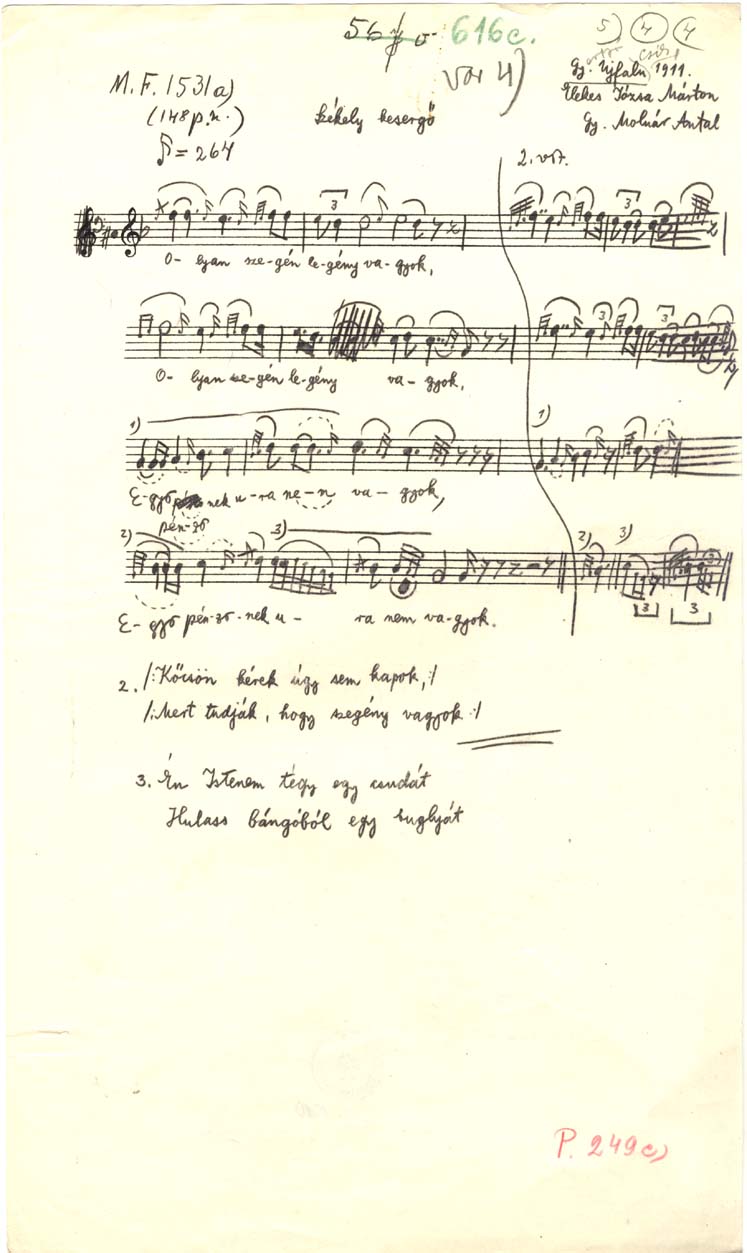 616c.
5) 4 4
var 4)
M.F. 1531a)
(148 p.n.)
= 264
Székely kesergő
Gy. Ujfalu 1911.
Elekes Józsa Márton
Gy. Molnár Antal
2. vsz.
3
3
O- lyan sze-gén le-gény va-gyok,
3
3
O- lyan sze-gén le-gény va-gyok,
1)
1)
E-győ nek u-ra ne-m va-gyok,
pén-ző
2) 3)
2) 3)
3
3
3
E-győ pén-ző-nek u- ra nem va-gyok.
2. /: Kőcsön kérek úgy sem kapok, :/
/: Mert tudják, hogy szegény vagyok :/
3. Én Istenem tégy egy csudát
Hulass bángóból egy buglyát
P. 249c)